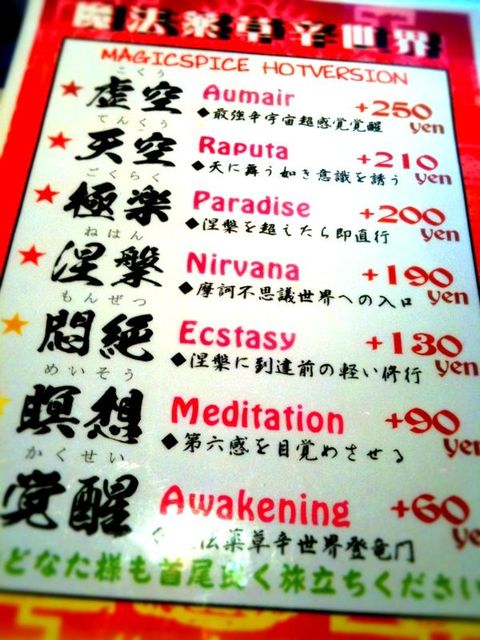 魔法薬草辛世界
MAGICSPICE HOTVERSION
こくう
虚空 Aumair +250 yen
◆最強辛宇宙超感覚覚醒
てんくう
天空 Raputa +210 yen
◆天に舞う如き意識を誘う
ごくらく
極楽 Paradise +200 yen
◆涅槃を超えたら即直行
ねはん
涅槃 Nirvana +190 yen
◆摩訶不思議世界への入口
もんぜつ
悶絶 Ecstasy +130 yen
◆涅槃に到達前の軽い修行
めいそう
瞑想 Meditation +90 yen
◆第六感を目覚めさせる
かくせい
覚醒 Awakening +60
法薬草辛世界登竜門
どなた様も首尾良く旅立ちください